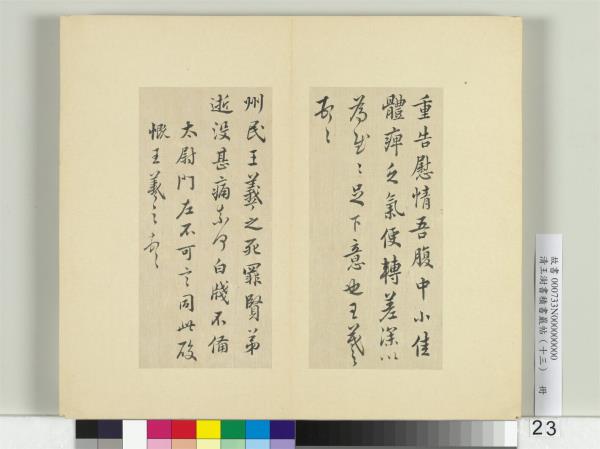 重告慰情吾腹中小佳
體痺乏氣便轉差深以
為慰〻足下意也王羲
頓〻
州民王羲之死罪賢弟
逝沒甚痛奈何白牋不備
太尉門左不可言同此酸
慨王羲之
故書000733N000000000
清王澍書積書巖帖（十三） 冊
23